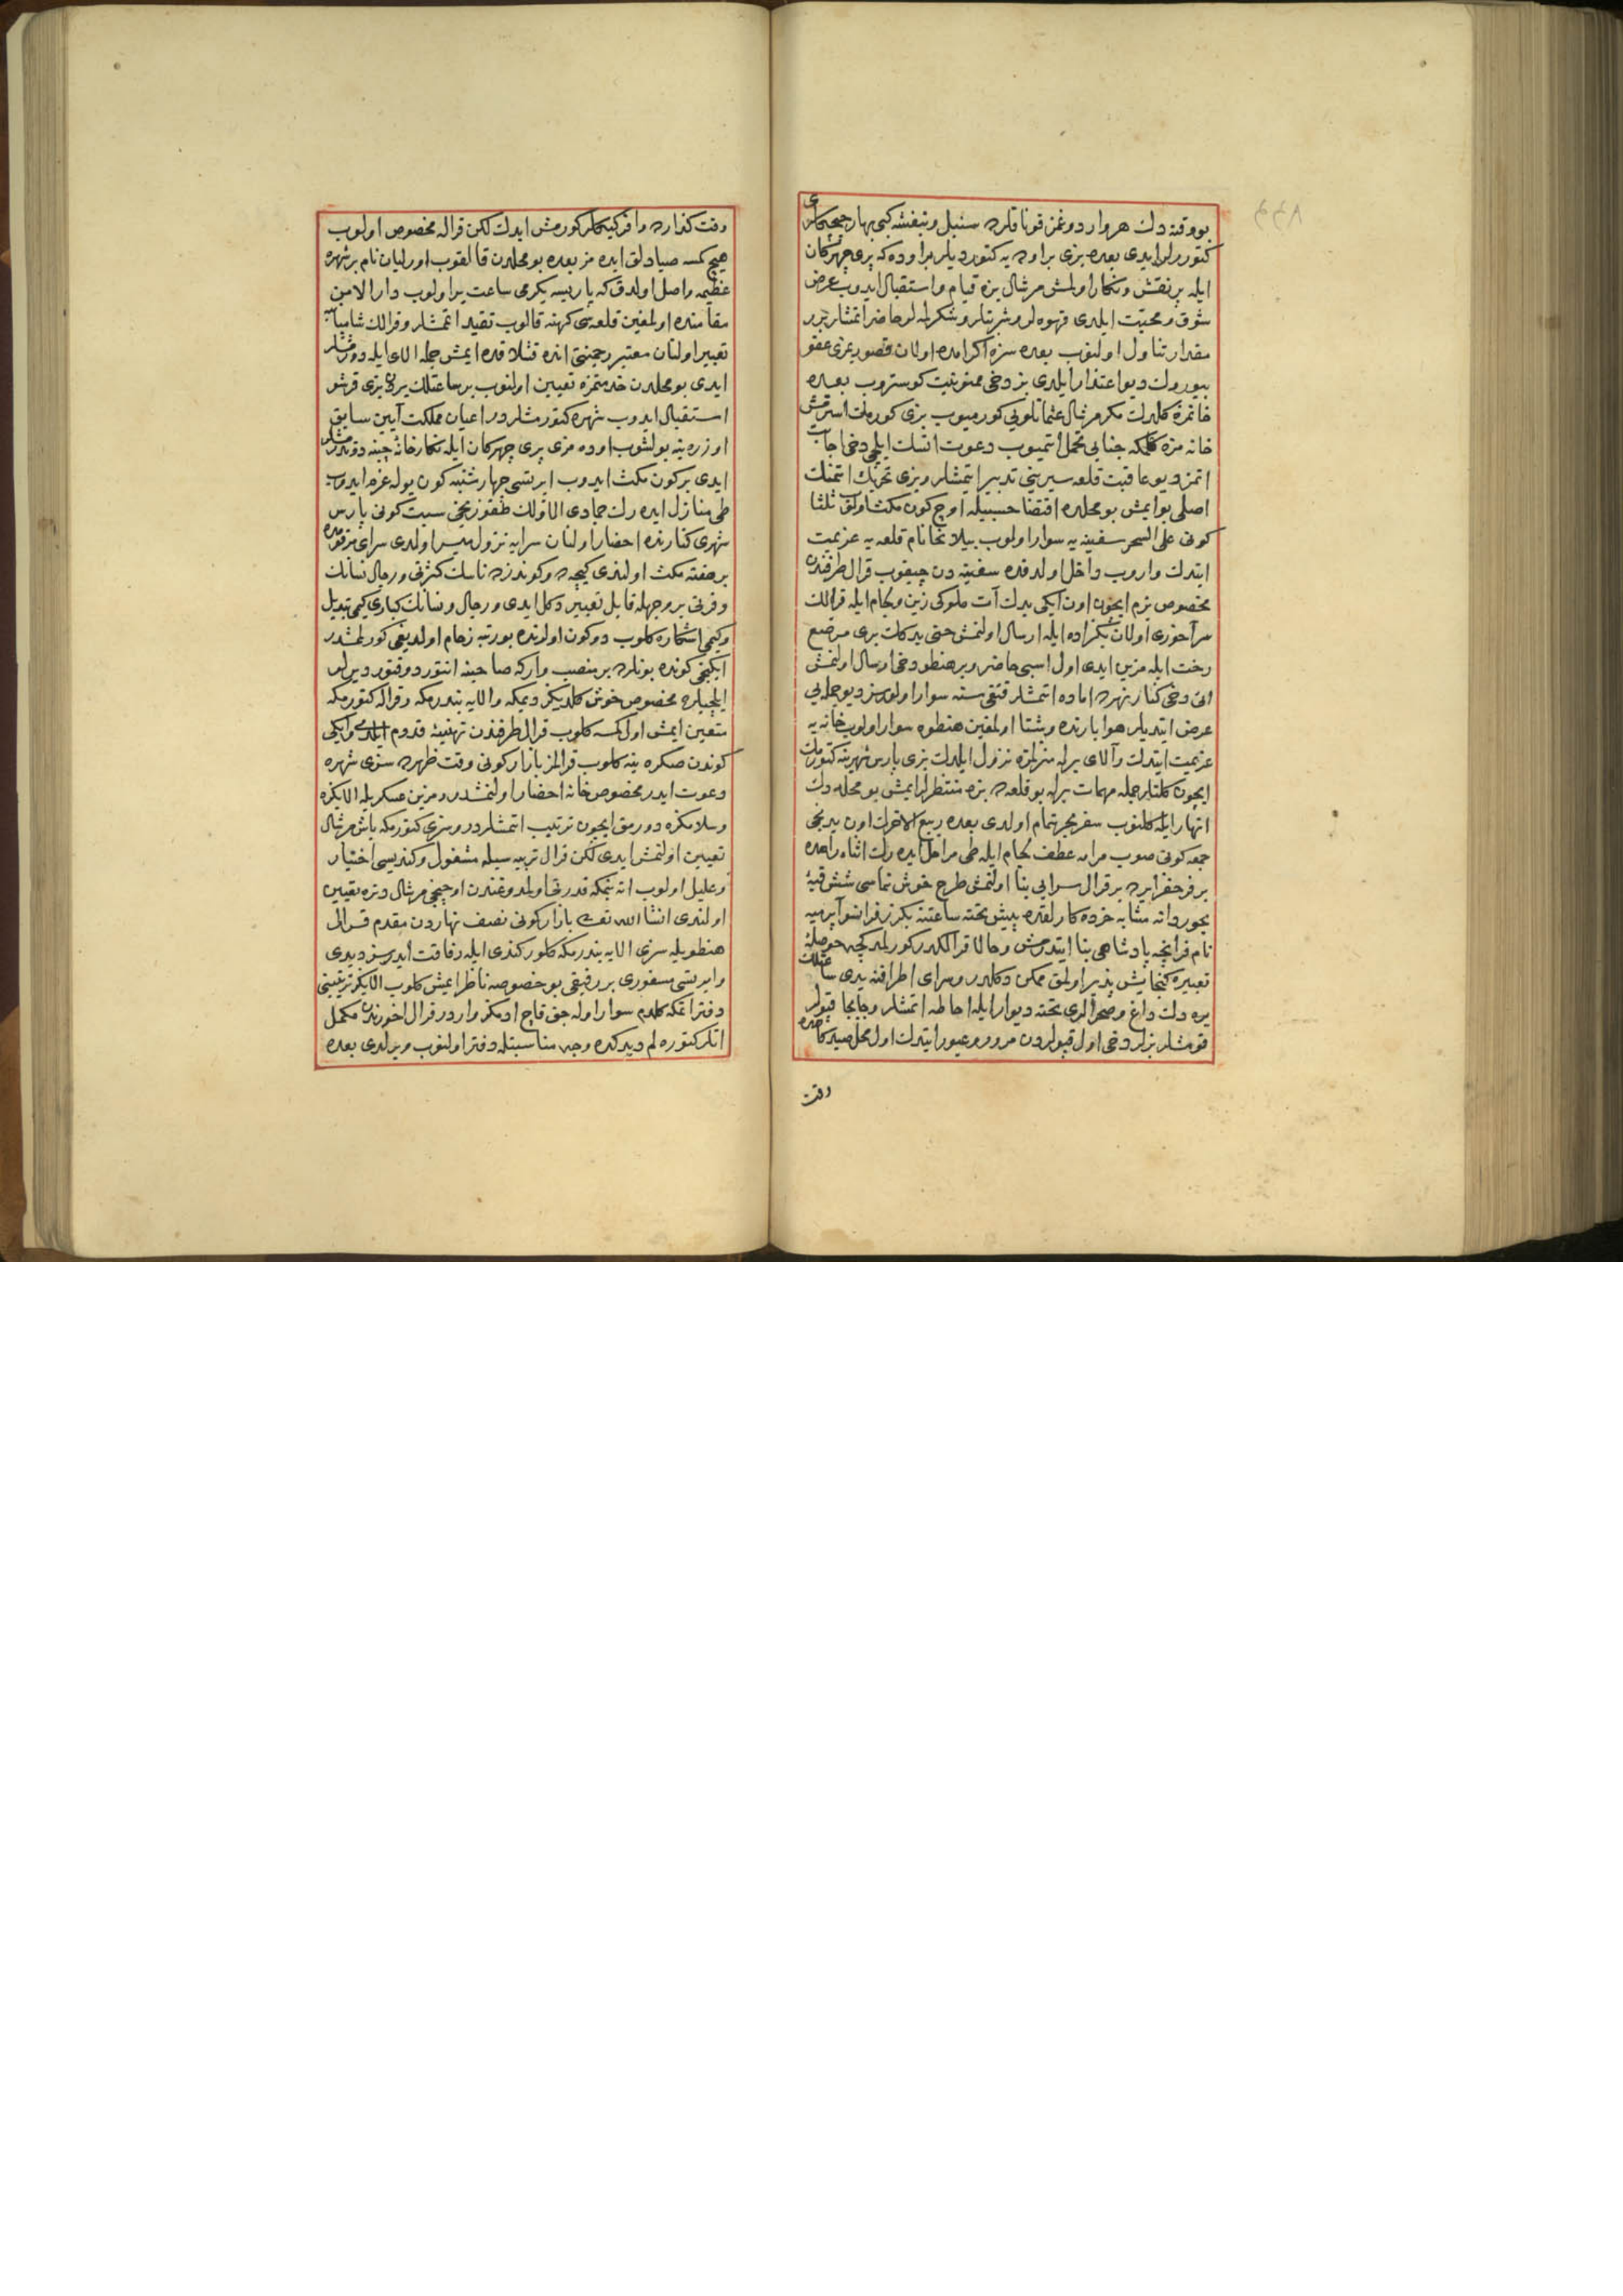 بو وقته دك هر وارد دوغمز قوناقلره سنبل و بنفشه كبی بهار چیچكلری
كتوررلر ایدی بعده بزی بر اوه یه كتوردیلر بر اوده كه پری چهركان
ایله پر نقش و نكار اولمش مرشال بزه قیام و استقبال ایدوب عرض
شوق و محبت ایلدی قهوه لر و شربتلر و شكرلمه لر حاضر اتمشلر بر
مقدار تناول اولنوب بعده سزه اكرامده اولان قصوریمزی عفو
بیورك دیو اعتذار ایلدی بز دخی ممنونیت كوستروب بعده
خانمزه كلدك مكر مرشال عثمانلویی كورمیوب بزی كورمك استرمش
خانه مزه كلمكه جنابی تحمل اتمیوب دعوت اتسك ایلچی دخی اجابت
اتمز دیو عاقبت قلعه سیرینی تدبیر اتمشلر و بزی تحریك اتمنك
اصلی بو ایمش بو محلده اقتضا حسبیله اوچ كون مكث اولنوب ثلثا
كونی علی السحر سفینه یه سوار اولوب بیلانخا نام قلعه یه عزیمت
ایتدك واروب داخل اولدقده سفینه دن چیقوب قرال طرفندن
مخصوص بزم ایچون اون ایكی یدك آت ملوكی زین و لجام ایله قرالك
میرآخوری اولان بكزاده ایله ارسال اولنمش حتی یدكلك بری مرصع
رخت ایله مزین ایدی اول اسبی حاضر و بر هنطو دخی ارسال اولنمش
انی دخی كنار نهره اماده اتمشلر قنقیسنه سوار اولورسز دیو جمله یی
عرض ایتدیلر هوا بارنده و شتا اولمغین هنطوه سوار اولوب خانه یه
عزیمت ایتدك و آلای برله منزلمزه نزول ایلدك بزی پارس شهرینه كتورمك
ایچون كلنلر جمله مهمات برله بو قلعه ده بزه منتظر لر ایمش بو محله دك
انهار ایله كلنوب سفر بحر تمام اولدی بعده ربیع الاخرك اون یدنجی
جمعه كونی صوب مرامه عطف لجام ایله طی مراحل ایده رك اثناء راهده
بر فرحفزا یرده بر قرال سرایی بنا اولنمش طرح خوش نماسی شش قبه
بجور دانه مشابه خرده كارلقده پیش تخته ساعتنه بكزر فرانسوا پرمیه
نام فرانچه پادشاهی بنا ایتدرمش و حالا قرالكدر كورلمدكجه حوصلهٔ
تعبیره كنجایش پذیر اولمق ممكن دكلدر و سرای اطرافنه یدی ساعتلك
یره دك داغ و صحرالری تخته دیوار ایله احاطه اتمشلر و جابجا قپولر
قومشلر بزلر دخی اول قپولردن مرور و عبور ایتدك اول محل صیدكاهده
وقت
وقت كذارده وافر كیكلر كورمش ایدك لكن قراله مخصوص اولوب
هیچ كمسه صیادلق ایده مز بعده بو محلدن قالقوب اورلیان نام بر شهره
عظیمه واصل اولدق كه پاریسه یكرمی ساعت یر اولوب دار الامن
مقامنده اولمغین قلعه سی كهنه قالوب تقید اتمشلر و قرالك شامبات
تعبیر اولنان معتبر رجمنتی انده قشلاقده ایمش جمله الای ایله دورمشلر
ایدی بو محلدن خدمتمزه تعیین اولنوب بر ساعتلك یردن بزی قرشو
استقبال ایدوب شهره كتورمشلردر اعیان مملكت آیین سابق
اوزره ینه بولشوب اوده مزی پری چهركان ایله نكارخانهٔ چینه دوندرمشلر
ایدی بر كون مكث ایدوب ایرتسی چهارشنبه كون یوله عزم ایدوب
طی منازل ایده رك جمادی الاولك طقوزنجی سبت كونی پارس
شهری كنارنده احضار اولنان سرایه نزول میسر اولدی سرای مزبورده
بر هفته مكث اولندی كیجه ده و كوندزده ناسك كثرتی و رجال نسانك
وفرتی بر وجهله قابل تعبیر دكل ایدی و رجال و نسانك كباری كیمی تبدیل
و كیمی اشكاره كلوب دوكون اولرنده بو رتبه زحام اولدیغی كورلمشدر
ایكنجی كونده بونلرده بر منصب وار كه صاحبنه انتوردوقتور دیرلر
ایلچیلره مخصوص خوش كلدیكز دیمكه و الایه بندرمكه و قراله كتورمكه
متعین ایمش اول كمسه كلوب قرال طرفندن تهنیهٔ قدوم ایلدی و ایكی
كوندن صكره ینه كلوب قرالمز بازار كونی وقت ظهرده سزی شهره
دعوت ایدر مخصوص خانه احضار اولنمشدر و مزین عسكریله الایكزه
و سلامكزه دورمق ایچون ترتیب اتمشلردر و سزی كتورمكه باش مرشال
تعیین اولنمش ایدی لكن قرال تربیه سیله مشغول و كندیسی اختیار
و علیل اولوب اته بنمكه قدرتی اولمدوغندن اوچنجی مرشال دتره تعیین
اولندی انشا الله تعالی بازار كونی نصف نهاردن مقدم قرال
هنطویله سزی الایه بندرمكه كلور كندی ایله رفاقت ایدرسز دیدی
و ایرتسی مسفوری بر رفیقی بو خصوصه ناظر ایمش كلوب الایكز ترتیبنی
دفتر اتمكه كلدم سوار اوله جق قاچ ادمكز واردر قرال اخورندن مكمل
اتلر كتوره لم دیدكده وجه مناسبتله دفتر اولنوب ویرلدی بعده